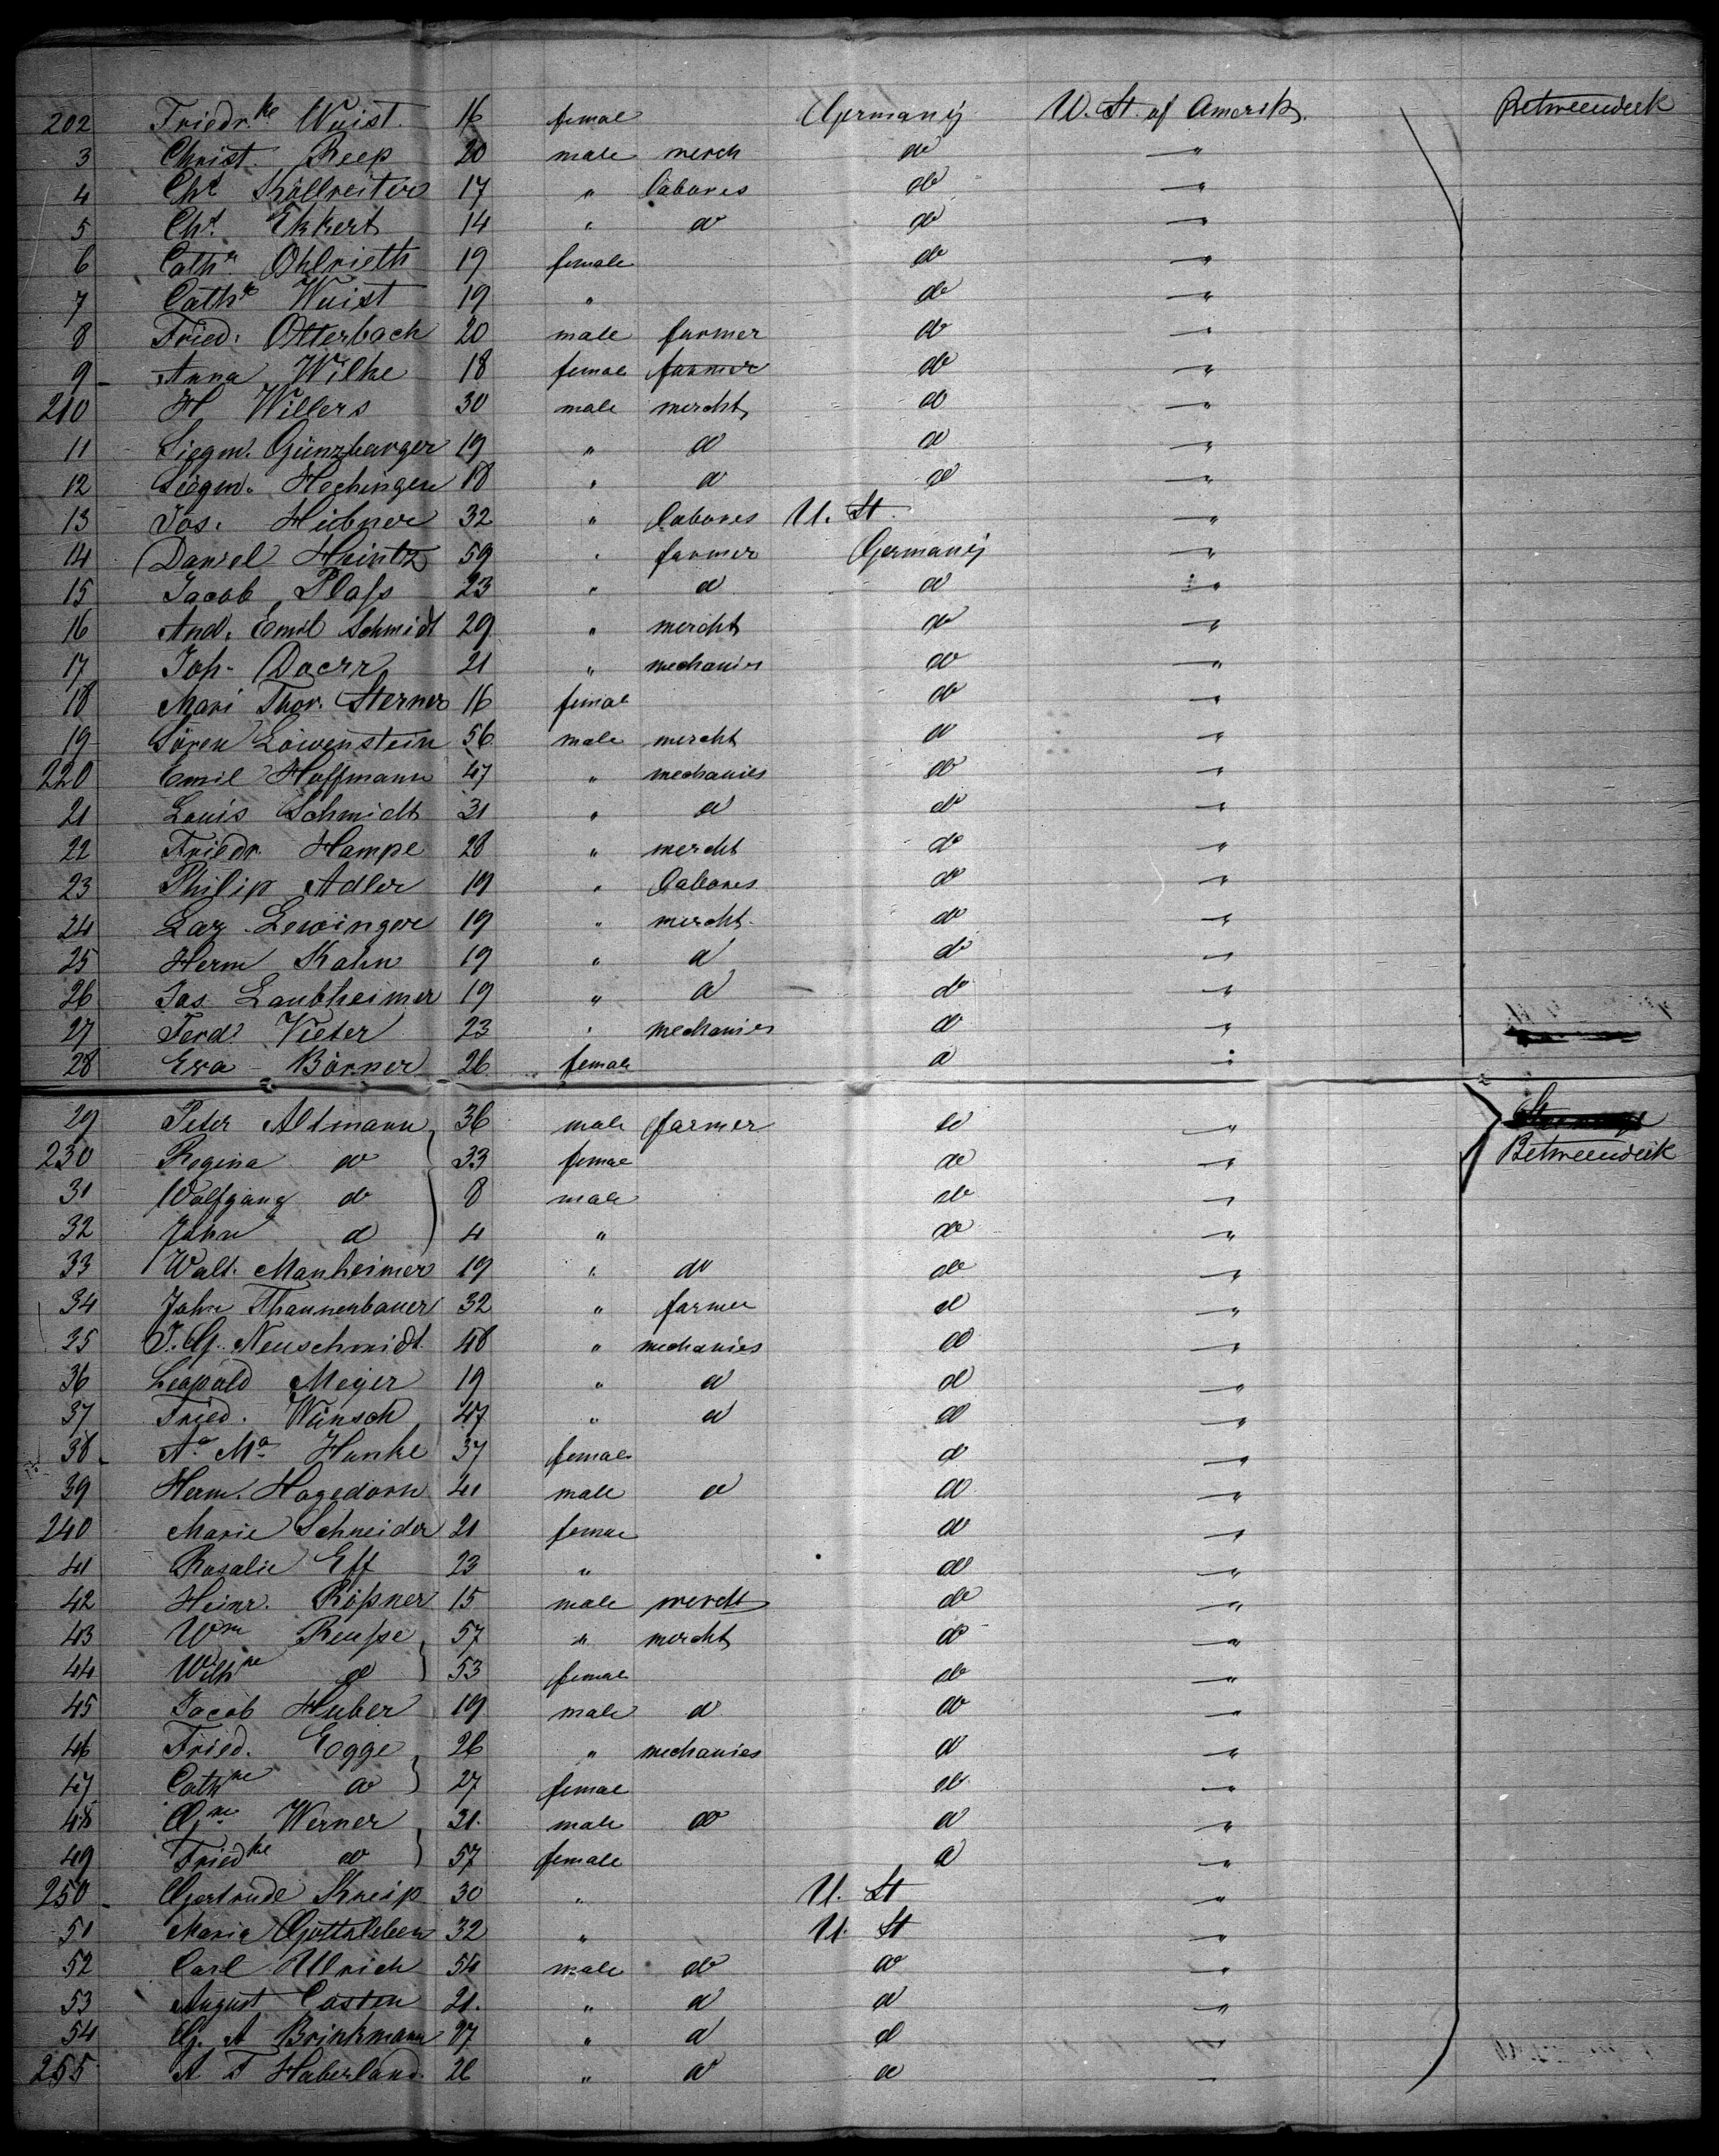 202 Friedr.ke Wuist. 16 femal Germany U. St. of Amerik. Betweendeck
3 Christ. Reep 20 male merch do "
4 Chr. Köllreiter 17 " labores do "
5 Chr. Ekkert 14 " do do "
6 Cathr. Ohlrieth 19 female do "
7 Cathr. Wuist 19 " do "
8 Fried. Otterbach 20 male farmer do "
9 Anna Wilke 18 femal farmer do "
210 H Willers 30 male mercht do "
11 Siegm. Günzbarger 19 " do do "
12 Siegm. Hechinger 18 " do do "
13 Jos. Hübner 32 " labores U. St. "
14 Daniel Heintz 59 " farmer Germany "
15 Jacob Plaſs 23 " do do "
16 And. Emil Schmidt 29 " mercht do "
17 Joh. Doerr 21 " mechanics do "
18 Mari Thor. Sterner 16 femal do "
19 Sören Löwenstein 56 male mercht do "
220 Emil Hoffmann 47 " mechanics do "
21 Louis Schmidt 31 " do do "
22 Friedr. Hampe 28 " mercht do "
23 Philip Adler 19 " labores do "
24 Laz. Lewinger 19 " mercht. do "
25 Herm Kahn 19 " do do "
26 Jos Laubheimer 19 " do do "
27 Ferd. Vieter 23 " mechanics do "
28 Eva Börner 26 female do "
29 Peter Altmann 36 male farmer do "
230 Regina do 33 femal do " Betweendeck
31 Wolfgang do 8 male do "
32 John do 4 " do "
33 Walt. Manheimer 19 " do do "
34 John Thannenbauer 32 " farmer do "
35 J. G. Neuschmidt. 48 " mechanics do "
36 Leopold Meyer 19 " do do "
37 Fried. Wünsch 47 " do do "
38 Aa Ma Hanke 37 female do "
39 Herm. Hagedorn 41 male do do "
240 Marie Schneider 21 femae do "
41 Rosalie Eff 23 " do "
42 Heinr. Röſsner 15 male mercht do "
43 Wm Reuſse 57 " mercht do "
44 Wilhne do 53 female do "
45 Jacob Huber 19 male do do "
46 Fried. Egge 26 " mechanics do "
47 Cathne do 27 femal do "
48 Werner 31. male do do "
49 Friedke do 57 female do "
250 Gertrude Kneip 30 " U. St "
51 Maria Gottsleben 32 " U. St "
52 Carl Ullrich 54 male do do "
53 August Casten 21. " do do "
54 G. A Brinkmann 27 " do do "
255 A F Haberland. 26 " do do "